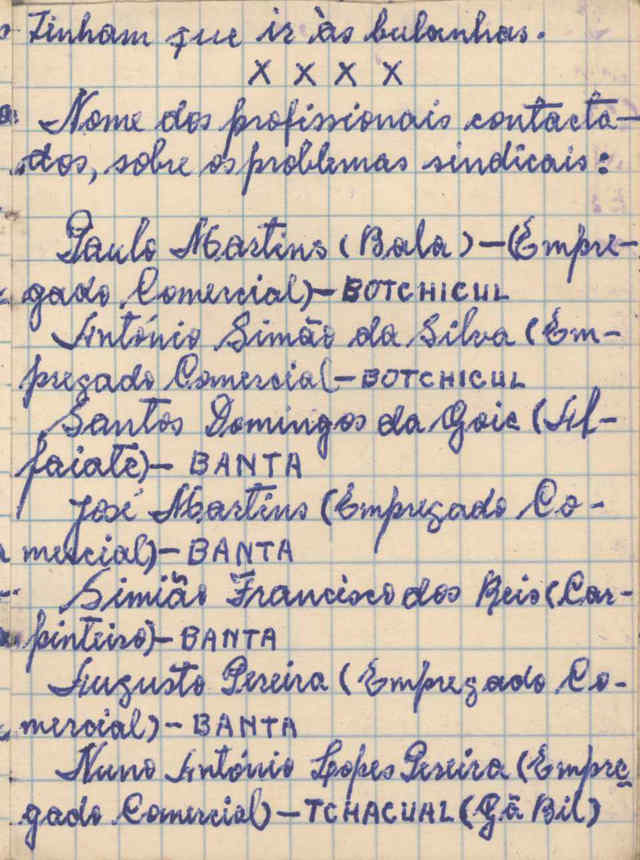 Tinham que ir às bulanhas.
X X X X
Nome dos profissionais contacta-
dos, sobre os problemas sindicais:
Paulo Martins (Bala) - (Empre-
gado Comercial) - BOTCHICUL
António Simão da Silva (Em-
pregado Comercial - BOTCHICUL
Santos Domingos da Goie (Al-
faiate) - BANTA
José Martins (Empregado Co-
mercial) - BANTA
Simião Francisco dos Reis (Car-
pinteiro) - BANTA
Augusto Pereira (Empregado Co-
mercial) - BANTA
Nuno António Lopes Pereira (Empre
gado Comercial) - TCHACUAL (Gã Bil)